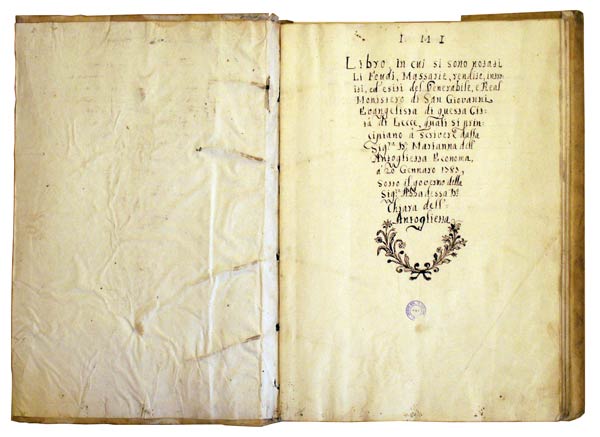 I M I
Libro, in cui si sono notati
Li Feudi, Massarie, rendite, intro-
iti, ed esiti del Venerabile, e Real
Monistero di San Giovanni
Evangelista di questa Cit-
tà di Lecce, quali si prin-
cipiano à scrivere dalla
Sig.ra D. Marianna dell'
Antoglietta Economa,
à 20 Gennaro 1783,
sotto il governo della
Sig.ra Abbadessa D.
Chiara dell'
Antoglietta